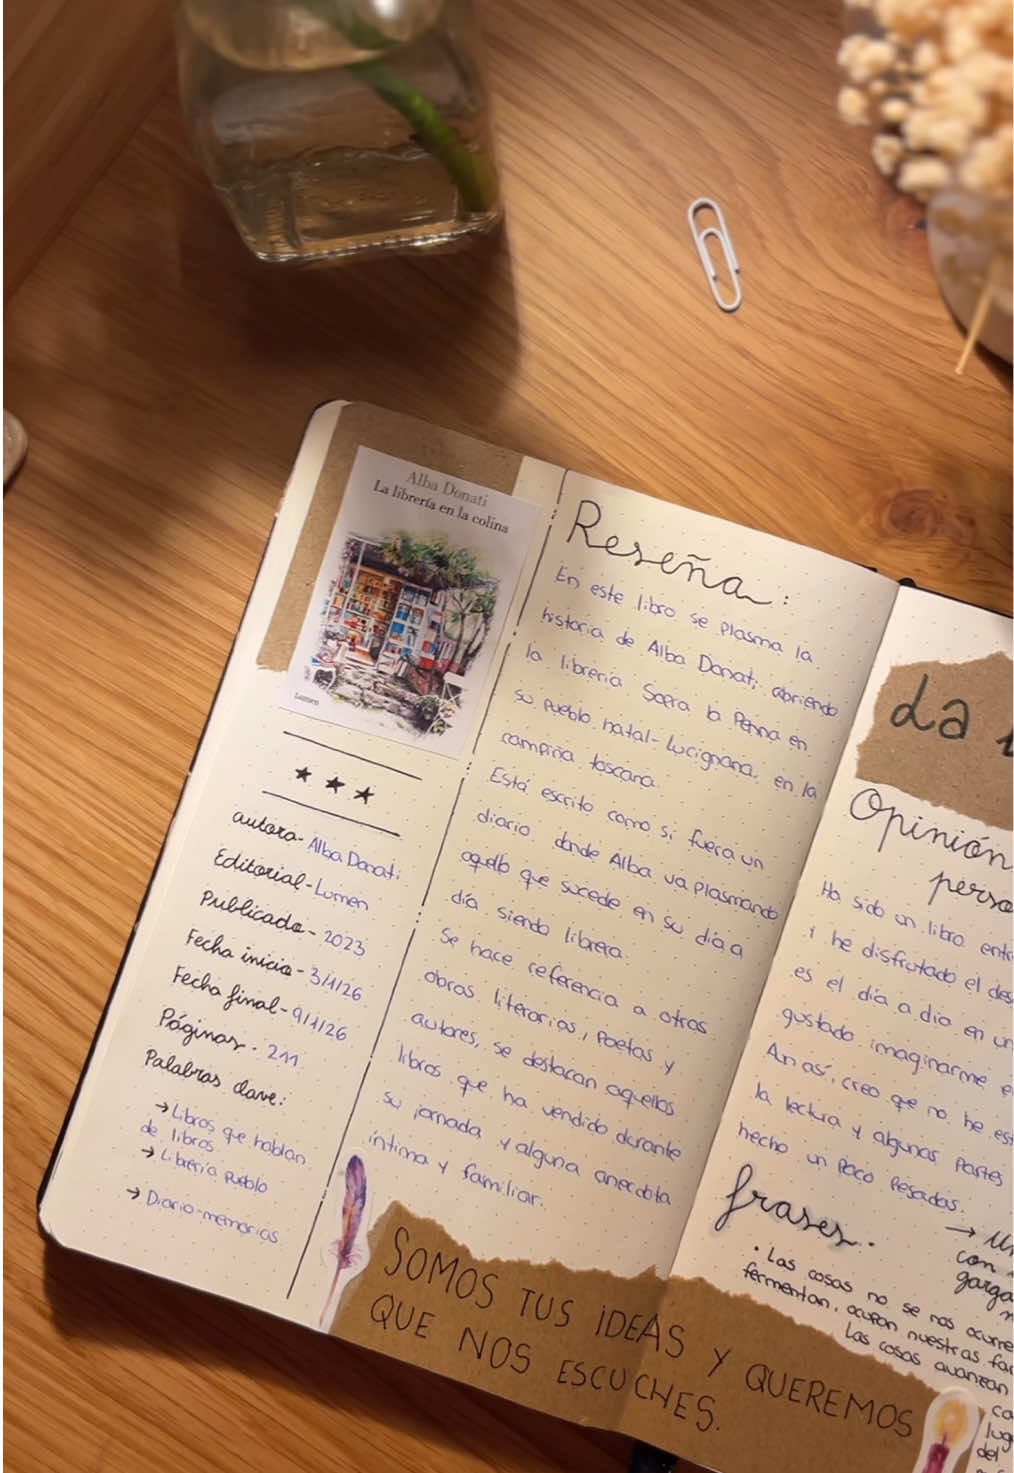 Alba Donati
La librería en la colina
Lumen
autora - Alba Donati
Editorial - Lumen
Publicado - 2023
Fecha inicio - 3/1/26
Fecha final - 9/1/26
Páginas - 211
Palabras clave:
→ Libros que hablan
de libros
→ Librería pueblo
→ Diario-memorias
Reseña:
En este libro se plasma la
historia de Alba Donati abriendo
la librería Sopra la Penna en
su pueblo natal - Lucignana, en la
campiña toscana.
Está escrito como si fuera un
diario donde Alba va plasmando
aquello que sucede en su día a
día siendo librera.
Se hace referencia a otras
obras literarias, poetas y
autores, se destacan aquellos
libros que ha vendido durante
su jornada y alguna anecdota
íntima y familiar.
SOMOS TUS IDEAS Y QUEREMOS
QUE NOS ESCUCHES.
La
Opinión
Ha sido un libro
y he disfrutado el
es el día a día en
gustado imaginarme
An así, creo qe no he
la lectura y algunas partes
hecho un poco pesadas.
frases:
→
con
· Las cosas no se nos
fermentan, ocupan nuestras
Las cosas avanzan
del